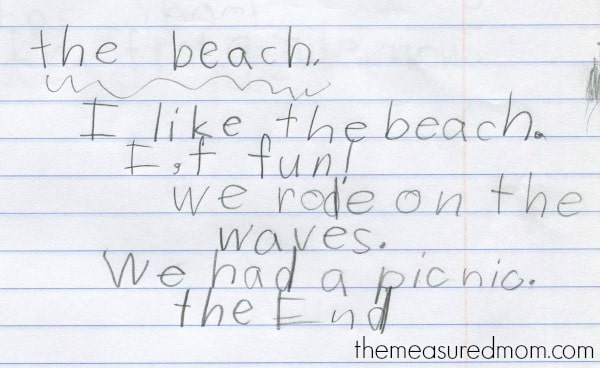 the beach.
I like the beach.
I,t fun!
we rode on the
waves.
We had a picnic.
the End
themeasuredmom.com